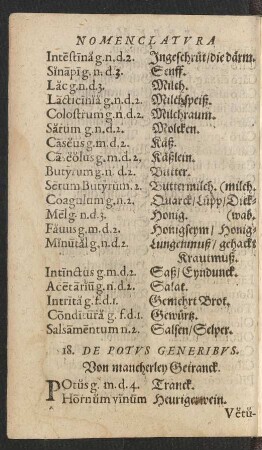 NOMENCLATVRA
Intēstīnă g.n.d.2. Ingeschrüt/die därm.
Sĭnāpĭ g.n.d.3. Senff.
Lăc g.n.d.3. Milch.
Lācticiniă g.n.d.2. Milchspeiß.
Colostrum g.n.d.2. Milchraum.
Sărum g.n.d.2. Molcken.
Cāsĕus g.m.d.2. Käß.
Cāsĕŏlus g.m.d.2. Käßlein.
Butyrum g.n.d.2. Butter.
Sĕrum Butyrūm.2. Buttermilch. (milch.
Coagulum g.n.2. Quarck/Lüpp/Dick-
Mĕl g.n.d.3. Honig. (wab.
Făuus g.m.d.2. Honigseym/Honig-
Mĭnūtăl g.n.d.2. Lungenmuß/gehackt
Krautmuß.
Intīnctus g.m.d.2. Saß/Eyndunck.
Acētārĭŭ g.n.d.2. Salat.
Intrītă g.f.d.1. Gemehrt Brot.
Cōndĭtūră g.f.d.1. Gewürtz.
Salsāmēntum n.2. Salsen/Selper.
18. DE POTVS GENERIBVS.
Von mancherley Getranck.
POtŭs g.m.d.4. Tranck.
Hōrnŭm vīnŭm Heurigerwein.
Vĕtŭ-